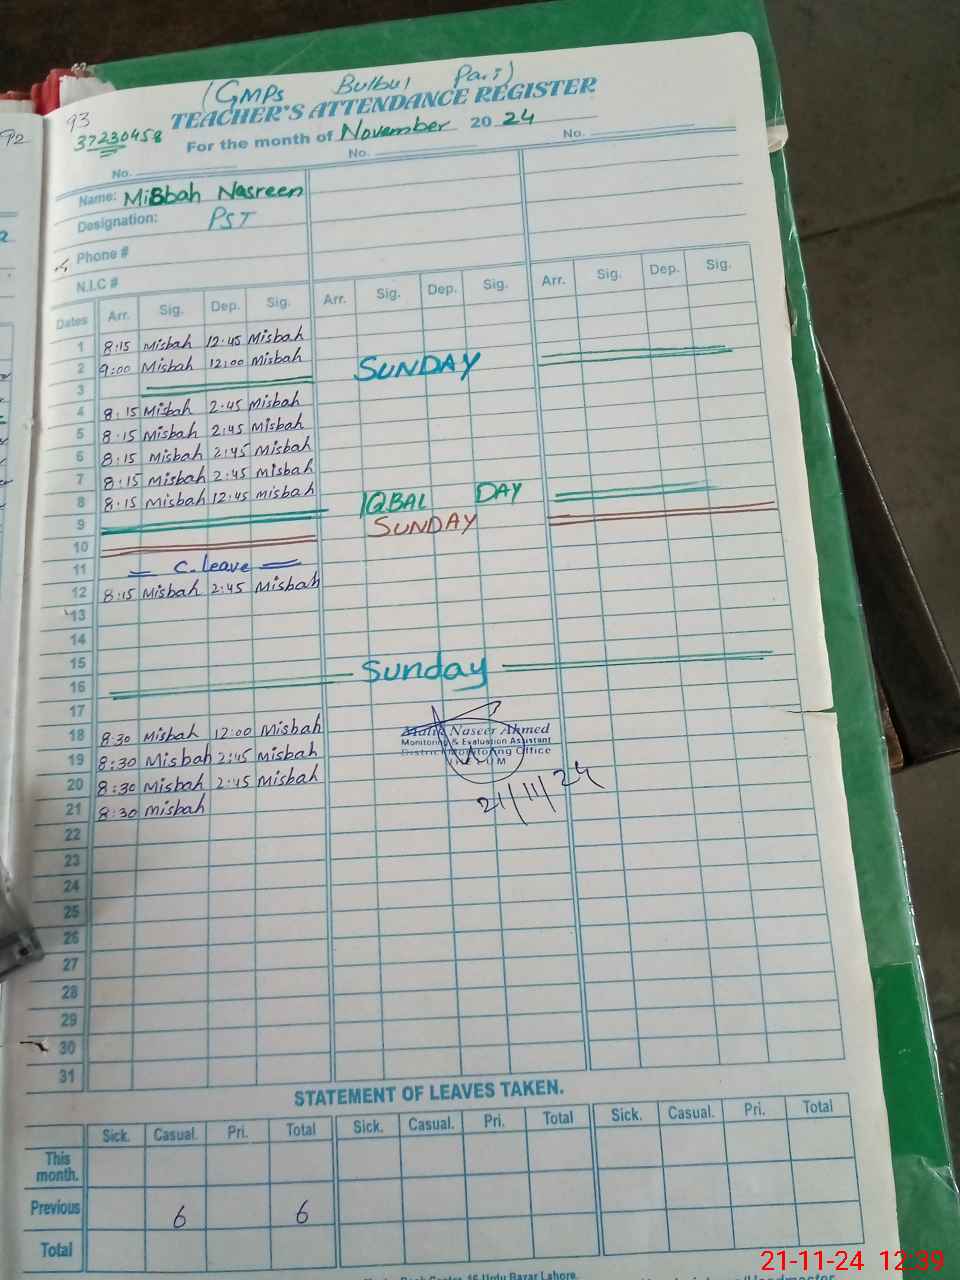 (GMPs Bulbul Pari)
93
TEACHER'S ATTENDANCE REGISTER
37230458
For the month of November 2024
No. No. No.
Name: Misbah Nasreen
Designation: PST
Phone #
N.I.C #
Dates Arr. Sig. Dep. Sig. Arr. Sig. Dep. Sig. Arr. Sig. Dep. Sig.
1 8:15 Misbah 12:45 Misbah
2 9:00 Misbah 12:00 Misbah
3 SUNDAY
4 8:15 Misbah 2:45 Misbah
5 8:15 Misbah 2:45 Misbah
6 8:15 Misbah 2:45 Misbah
7 8:15 Misbah 2:45 Misbah
8 8:15 Misbah 12:45 Misbah
9 IQBAL DAY
10 SUNDAY
11 C. leave
12 8:15 Misbah 2:45 Misbah
13
14
15
16 Sunday
17
18 8:30 Misbah 12:00 Misbah
19 8:30 Misbah 2:45 Misbah
20 8:30 Misbah 2:45 Misbah
21 8:30 Misbah
Malik Naseer Ahmed
Monitoring & Evaluation Assistant
District Monitoring Office
21/11/24
22
23
24
25
26
27
28
29
30
31
STATEMENT OF LEAVES TAKEN.
Sick. Casual. Pri. Total Sick. Casual. Pri. Total Sick. Casual. Pri. Total
This month.
Previous 6 6
Total
21-11-24 12:39